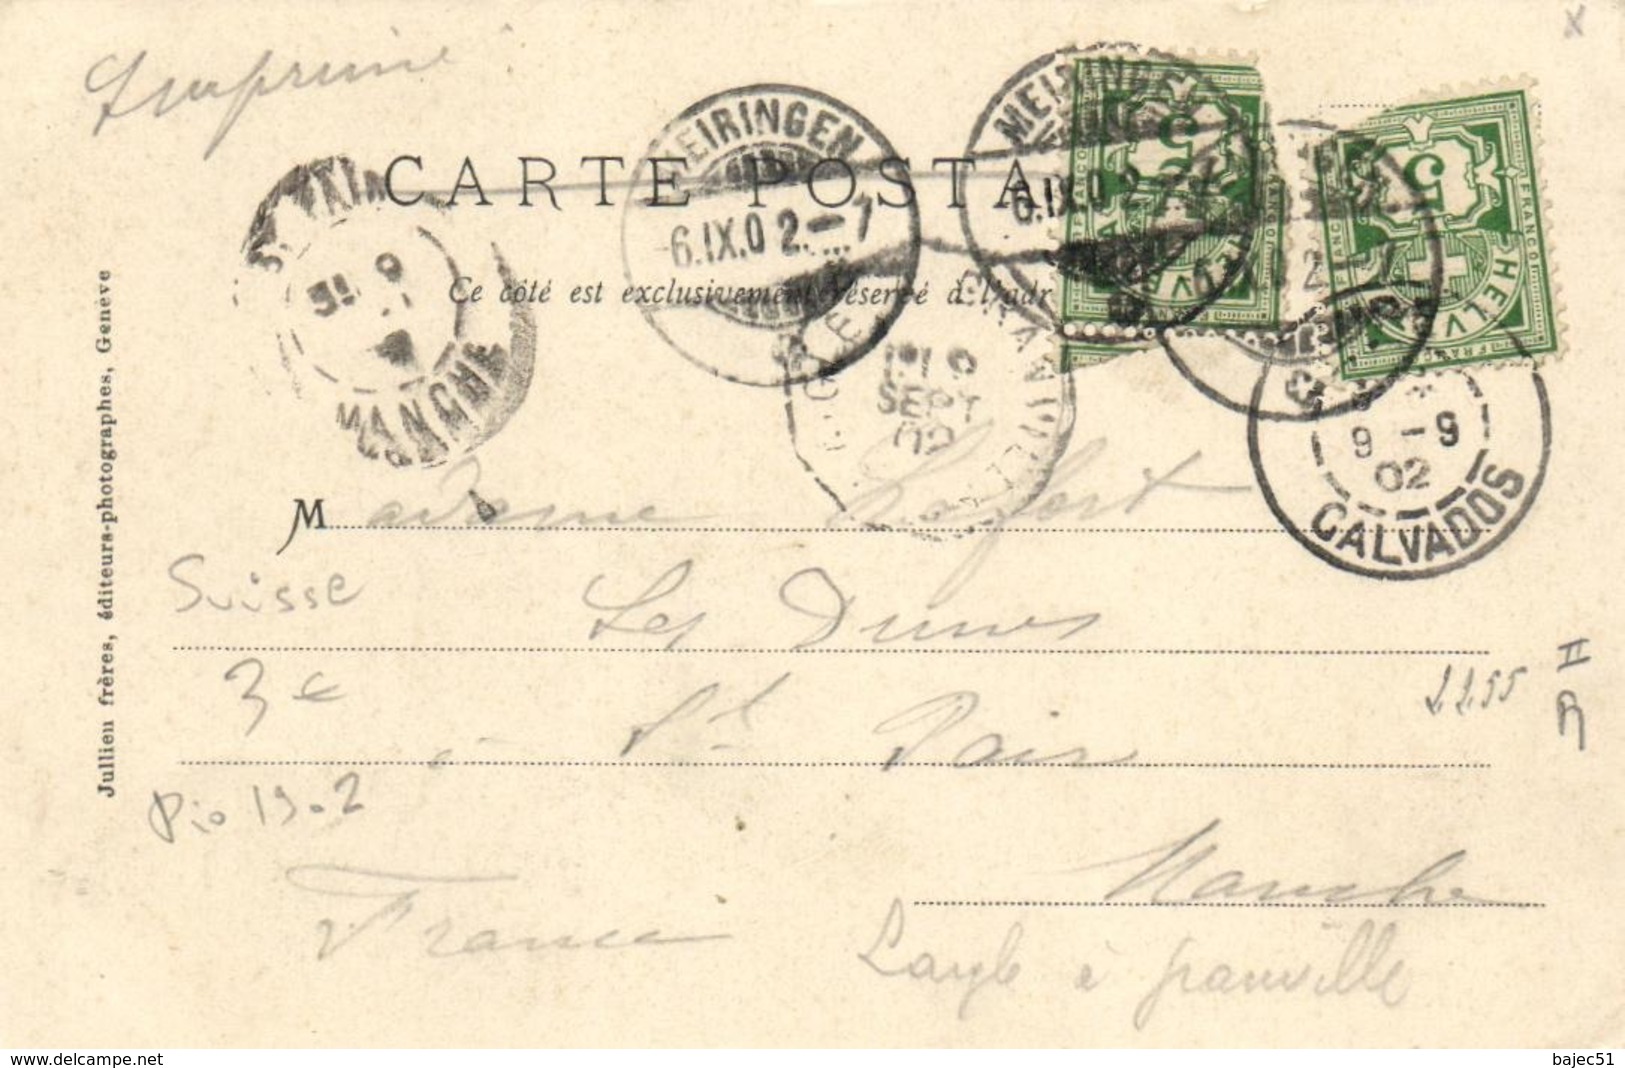 Imprimé
X
CARTE POSTA
Ce côté est exclusivement réservé à l'adr
MEIRINGEN
-6.IX.02.-7
MEIRINGEN
6.IX.02
5
FRANCO
HELVE
5
FRANCO
HELVE
MANCHE
SEPT
02
9 -9
02
CALVADOS
Madame Lafort
Suisse
Les Dunes
3€
à St Pair
2255
II
R
Pio 1902
Manche
France
Langle à granville
Jullien frères, éditeurs-photographes, Genève
www.delcampe.net
bajec51